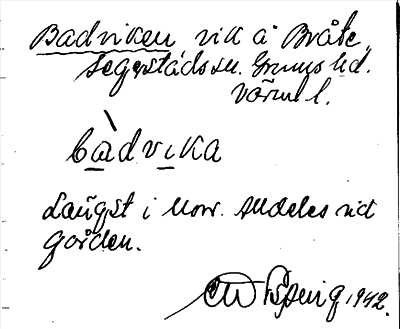 Badviken vik å Bråte,
Segerstads sn. Grums hd.
Värml.
bàdvika
Längst i Norr. Alldeles vid
gården.
1942.